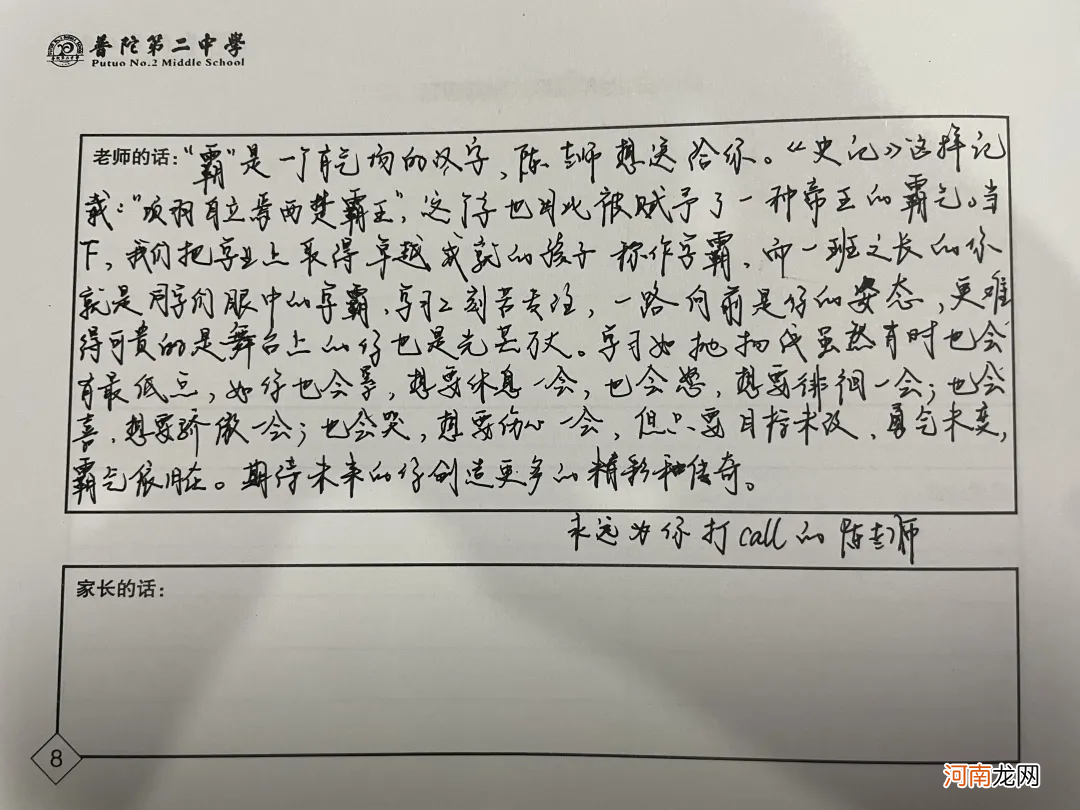 普陀第二中學
Putuo No.2 Middle School
老师的话："霸"是一个有气场的汉字，陈老师想送给你。《史记》这样记
载："项羽自立为西楚霸王"，这个字也因此被赋予了一种帝王的霸气。当
下，我们把学业上取得卓越成就的孩子称作学霸，而一班之长的你
就是同学们眼中的学霸，学习刻苦专注，一路向前是你的姿态，更难
得可贵的是舞台上的你也是光芒万丈。学习如抛物线虽然有时也会
有最低点，如你也会累，想要休息一会；也会愁，想要徘徊一会；也会
喜，想要骄傲一会；也会哭，想要伤心一会，但只要目标未改，勇气未变，
霸气依旧在。期待未来的你创造更多的精彩和传奇。
永远为你打call的陈老师
家长的话：
8
河南龙网